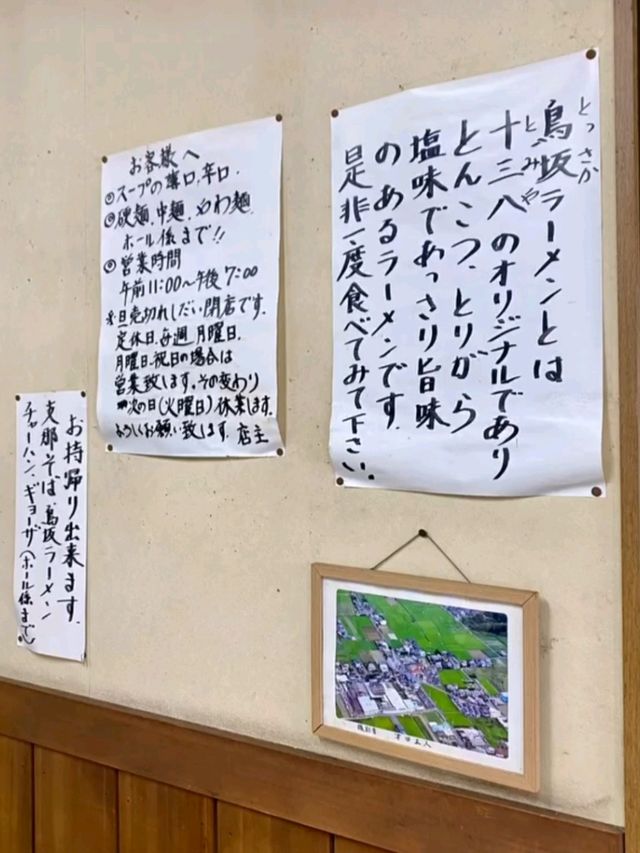 鳥坂ラーメンとは
とっさか
十三八のオリジナルであり
とみや
とんこつ、とりがら
塩味であっさり旨味
のあるラーメンです。
是非一度食べてみて下さい。
お客様へ
◎スープの薄口、辛口。
◎硬麺、中麺、やわ麺。
ホール係まで!!
◎営業時間
午前11:00～午後7:00
※但売切れしだい閉店です。
定休日、毎週月曜日。
月曜日、祝日の場合は
営業致します。その変わり
次の日(火曜日)休業します。
よろしくお願い致します。店主
お持帰り出来ます。
支那そば、鳥坂ラーメン
チャーハン、ギョーザ(ホール係まで)